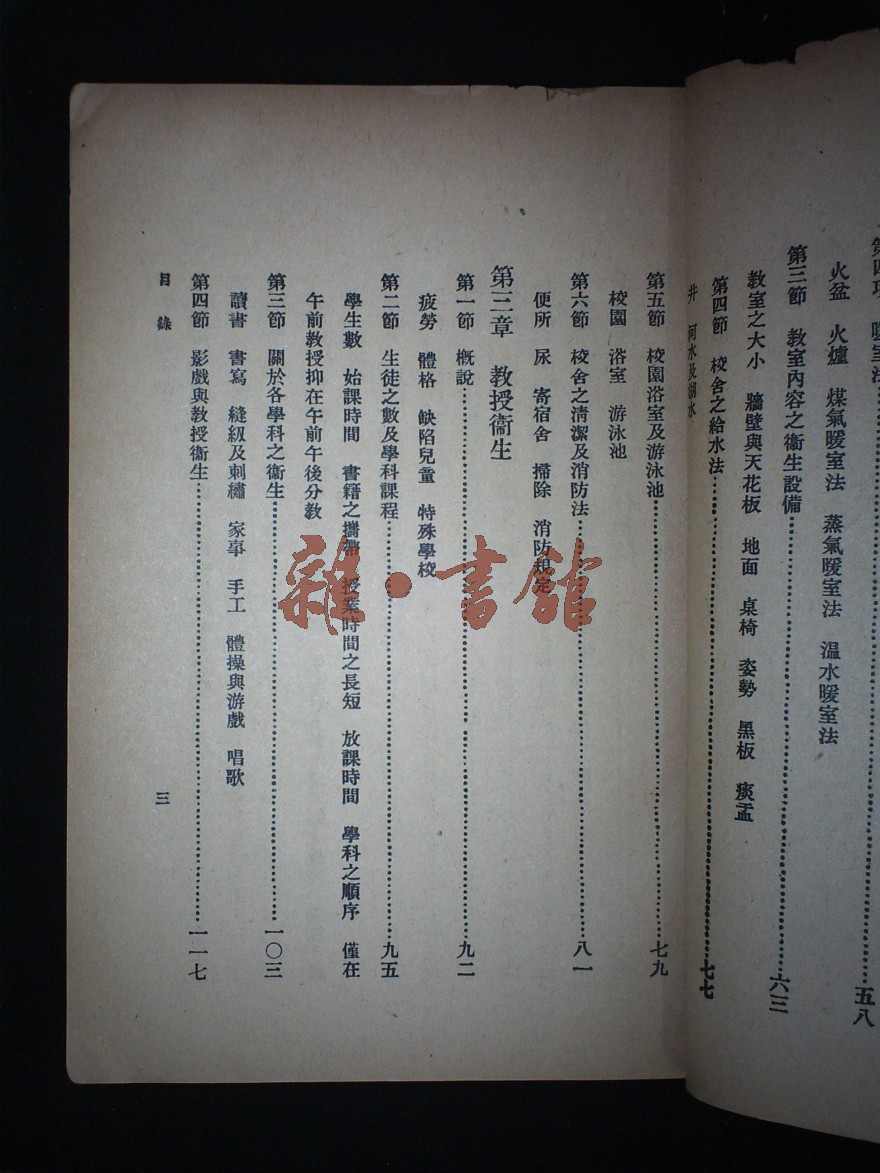 第四項　暖室法…………五八
火盆　火爐　煤氣暖室法　蒸氣暖室法　溫水暖室法
第三節　教室內容之衞生設備…………六三
教室之大小　牆壁與天花板　地面　桌椅　姿勢　黑板　痰盂
第四節　校舍之給水法…………七七
井　河水及湖水
第五節　校園浴室及游泳池…………七九
校園　浴室　游泳池
第六節　校舍之清潔及消防法…………八一
便所　尿　寄宿舍　掃除　消防規定
第三章　教授衞生
第一節　槪說…………九二
疲勞　體格　缺陷兒童　特殊學校
第二節　生徒之數及學科課程…………九五
學生數　始課時間　書籍之攜帶　授業時間之長短　放課時間　學科之順序　僅在
午前教授抑在午前午後分教
第三節　關於各學科之衞生…………一〇三
讀書　書寫　縫紉及刺繡　家事　手工　體操與游戲　唱歌
第四節　影戲與教授衞生…………一一七
目錄　三
雜·書館